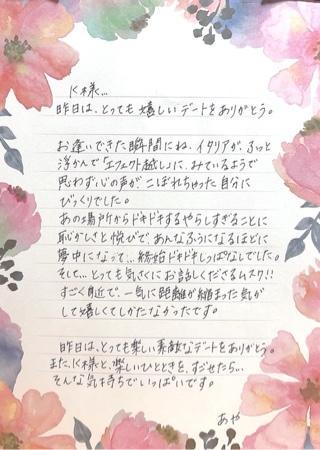 K様…
昨日は、とっても嬉しいデートをありがとう。
お逢いできた瞬間にね、イタリアが、ふっと
浮かんで「エフェクト越しに、みているようで
思わず心の声が、こぼれちゃった自分に
びっくりでした。
あの場所からドキドキするやらしすぎることに
恥かしさと悦びで、あんなふうになるほどに
夢中になって…終始ドキドキしっぱなしでした。
そして…とても気さくにお話しくださる
すごく身近で、一気に距離が縮まった気が
して嬉しくてしかたなかったです。
昨日は、とっても楽しい素敵なデートをありがとう。
また、K様と、楽しいひとときを、すごせたら…
そんな気持ちでいっぱいです。
あや